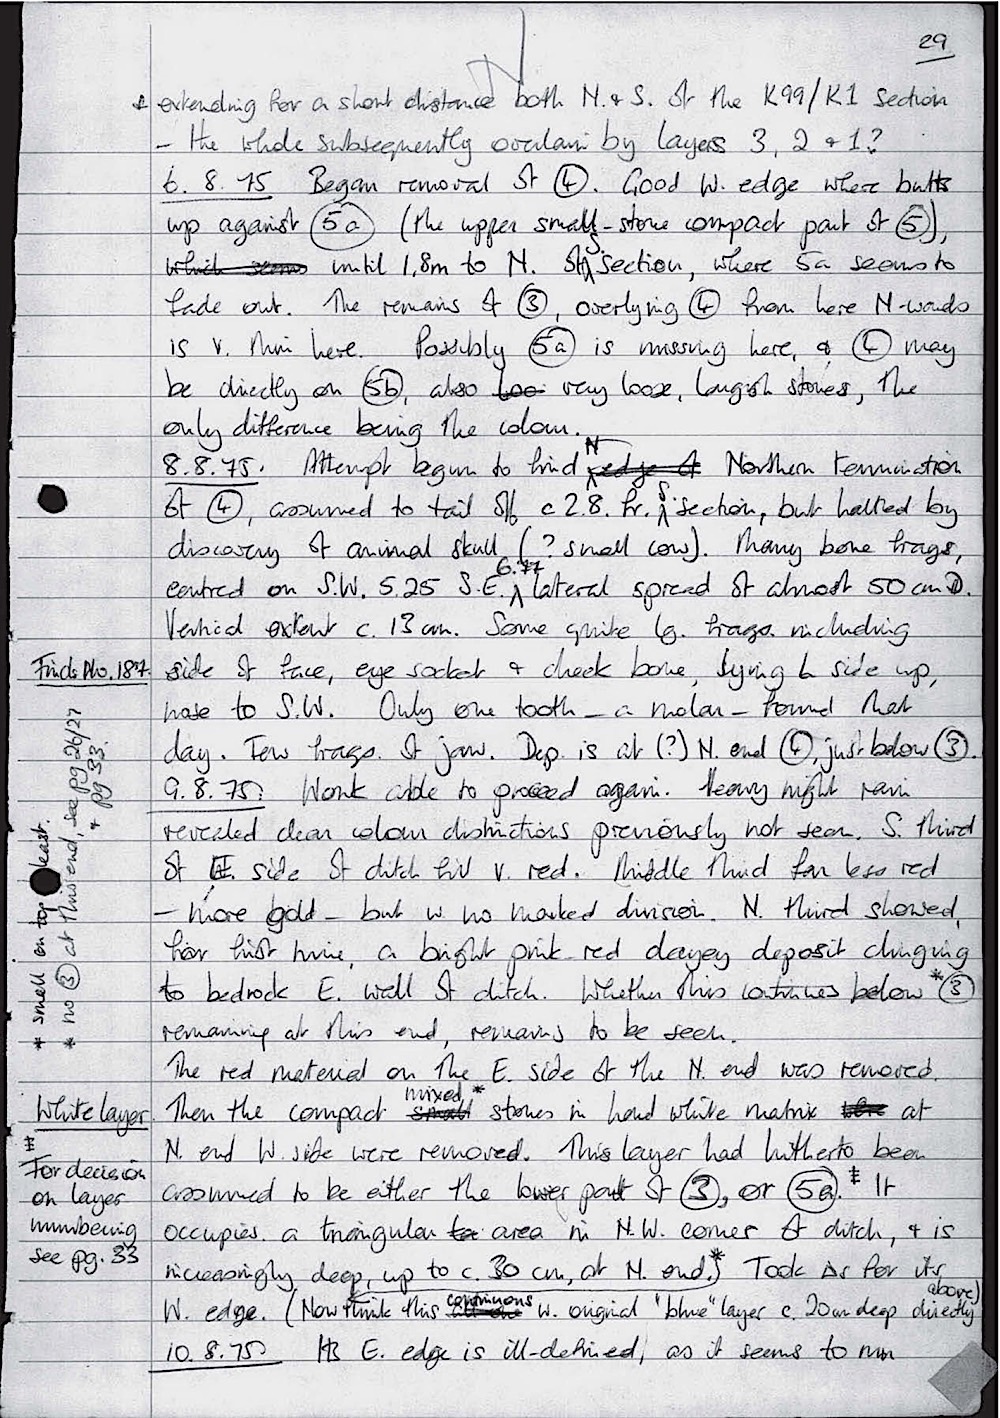 29
& extending for a short distance both N. & S. of the K99/K1 section
– the whole subsequently overlain by layers 3, 2 & 1?
6. 8. 75 Began removal of ④. Good W. edge where butts
up against 5a (the upper small-stone compact part of ⑤),
which seems until 1.8m to N. of S section, where 5a seems to
fade out. The remains of ③, overlying ④ from here N-wards
is v. thin here. Possibly 5a is missing here, & ④ may
be directly on 5b, also loo very loose, largish stones, the
only difference being the colour.
8.8.75. Attempt begun to find N edge of Northern termination
of ④, assumed to tail off c 2.8. fr. S section, but halted by
discovery of animal skull (? small cow). Many bone frags,
centred on S.W. 5.25 S.E. 6.77 lateral spread of almost 50 cm D.
Vertical extent c. 13 cm. Some quite lg. frags. including
Finds No. 187. side of face, eye socket & cheek bone, lying L side up,
nose to S.W. Only one tooth – a molar – found that
day. Few frags. of jaw. Dep. is at (?) N. end ④, just below ③.
9.8.75. Work able to proceed again. Heavy night rain
revealed clear colour distinctions previously not seen. S. third
of E. side of ditch fill v. red. Middle third far less red
– more gold – but w no marked division. N. third showed,
for first time, a bright pink-red clayey deposit clinging
to bedrock E. wall of ditch. Whether this continues below *③
remaining at this end, remains to be seen.
* small on top east.
* no ③ at this end, see pg 26/27
& pg 33.
The red material on the E. side of the N. end was removed.
White layer. Then the compact small mixed* stones in hard white matrix were at
N. end W. side were removed. This layer had hitherto been
assumed to be either the lower part of ③, or 5a.‡ It
occupies a triangular to area in N.W. corner of ditch, & is
increasingly deep, up to c. 30 cm, at N. end.* Took as for its
W. edge. (Now think this continuous w. original "blue" layer c. 20cm deep directly above)
‡ For decision
on layer
numbering
see pg. 33
10.8.75 Its E. edge is ill-defined, as it seems to run